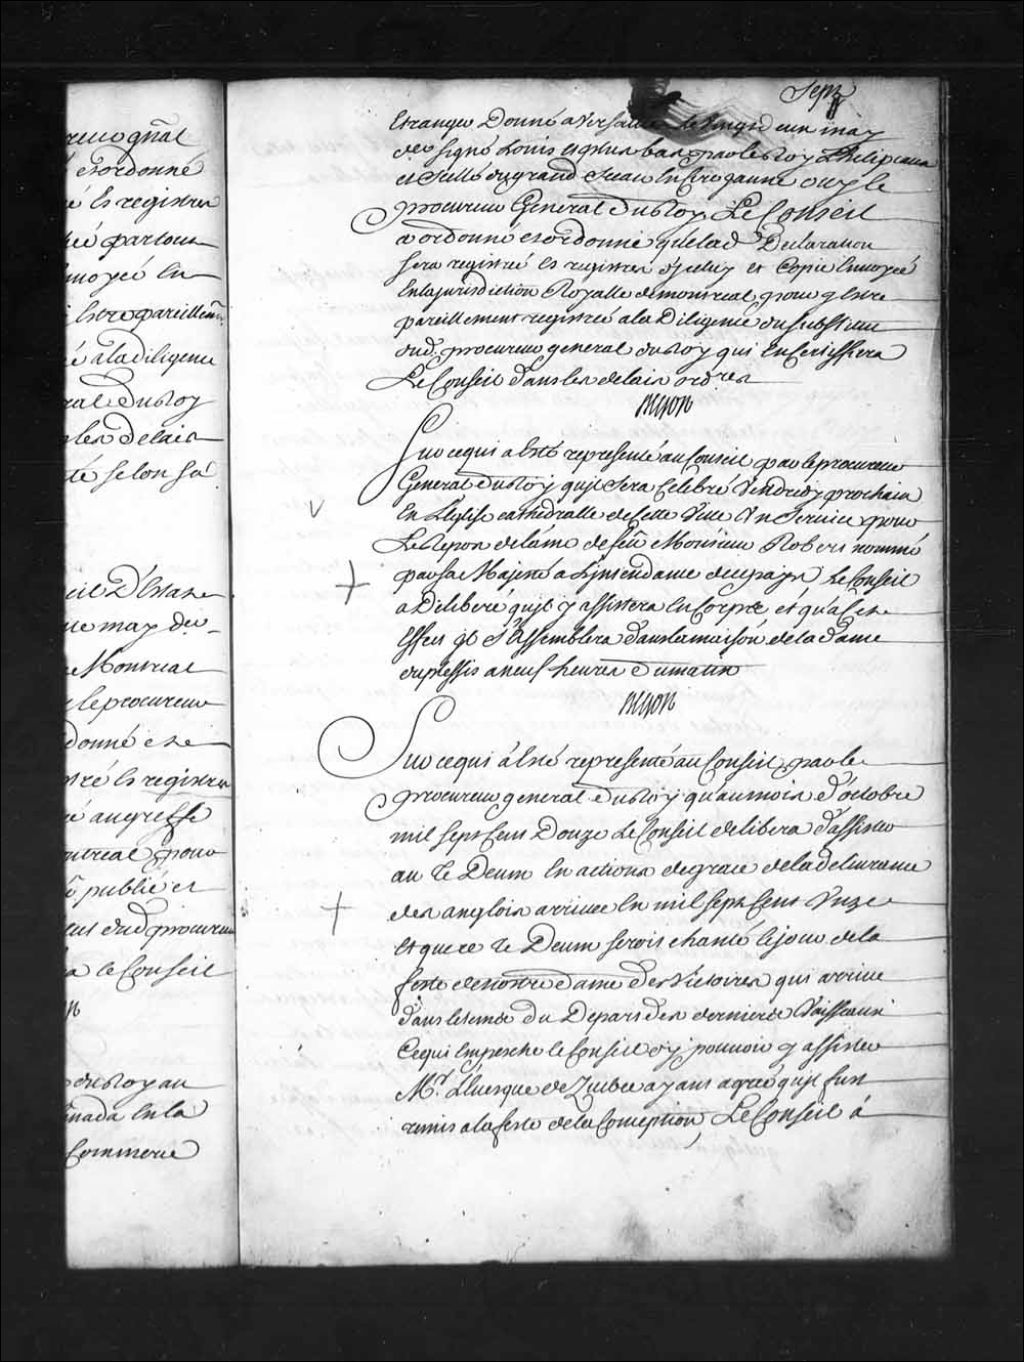 reur gñal
esordonné
é Es registres
heé partout
Envoyeé En
Estre pareillem̃
é ala diligence
ral du Roy
les delais
té selon sa
eil D'Estat
me may der
Montreal
le procureur
donné et
stré Es registres
é augreffe
ntreal pour
publié et
dud. procureur
le Conseil
du Roy au
nada En la
Commerce
Sept
Etranger Donné a Versailles le vingt un may
der signé Louis et plus bas par le Roy Phelipeaux
et scellé du grand sceau En Cire jaune ouy le
procureur General du Roy Le Conseil
a ordonné et ordonne que lad. Declaration
sera registreé Es registres d'jceluy et Copie Envoyeé
En la jurisdiction Royalle de montreal pour y Estre
pareillement registreé a la Diligence du substitut
dud. procureur general du Roy qui En Certiffiera
Le Conseil dans les delais ordres
Begon
Sur cequi a Esté representé au Conseil par le procureur
General du Roy qu'jl sera Celebré Vendredy prochain
En L'Eglise cathedralle de cette Ville Un Service pour
Le Repos de l'ame de feu Monsieur Robert nommé
par sa Majesté a L'jntendance de ce pays Le Conseil
a Deliberé qu'jl y assistera En Corps et qu'a Cet
Effet jl S'Assemblera dans la maison de la dame
duplessis a neuf heures du matin
Begon
Sur cequi a Esté representé au Conseil par le
procureur general du Roy qu'au mois d'octobre
mil sept Cent Douze Le Conseil delibera d'assister
au Te Deum En actions de grace de la delivrance
des anglois arriveé En mil sept Cent Unze
Et que ce Te Deum seroit chanté le jour de la
feste de nostre dame des Victoires qui arrive
dans le temps du Depart des derniers Vaisseaux
Cequi Empesche le Conseil d'y pouvoir y assister
Mr. L'Evesque de Quebec ayant agreé qu'jl fust
remis a la feste de la Conception, Le Conseil á